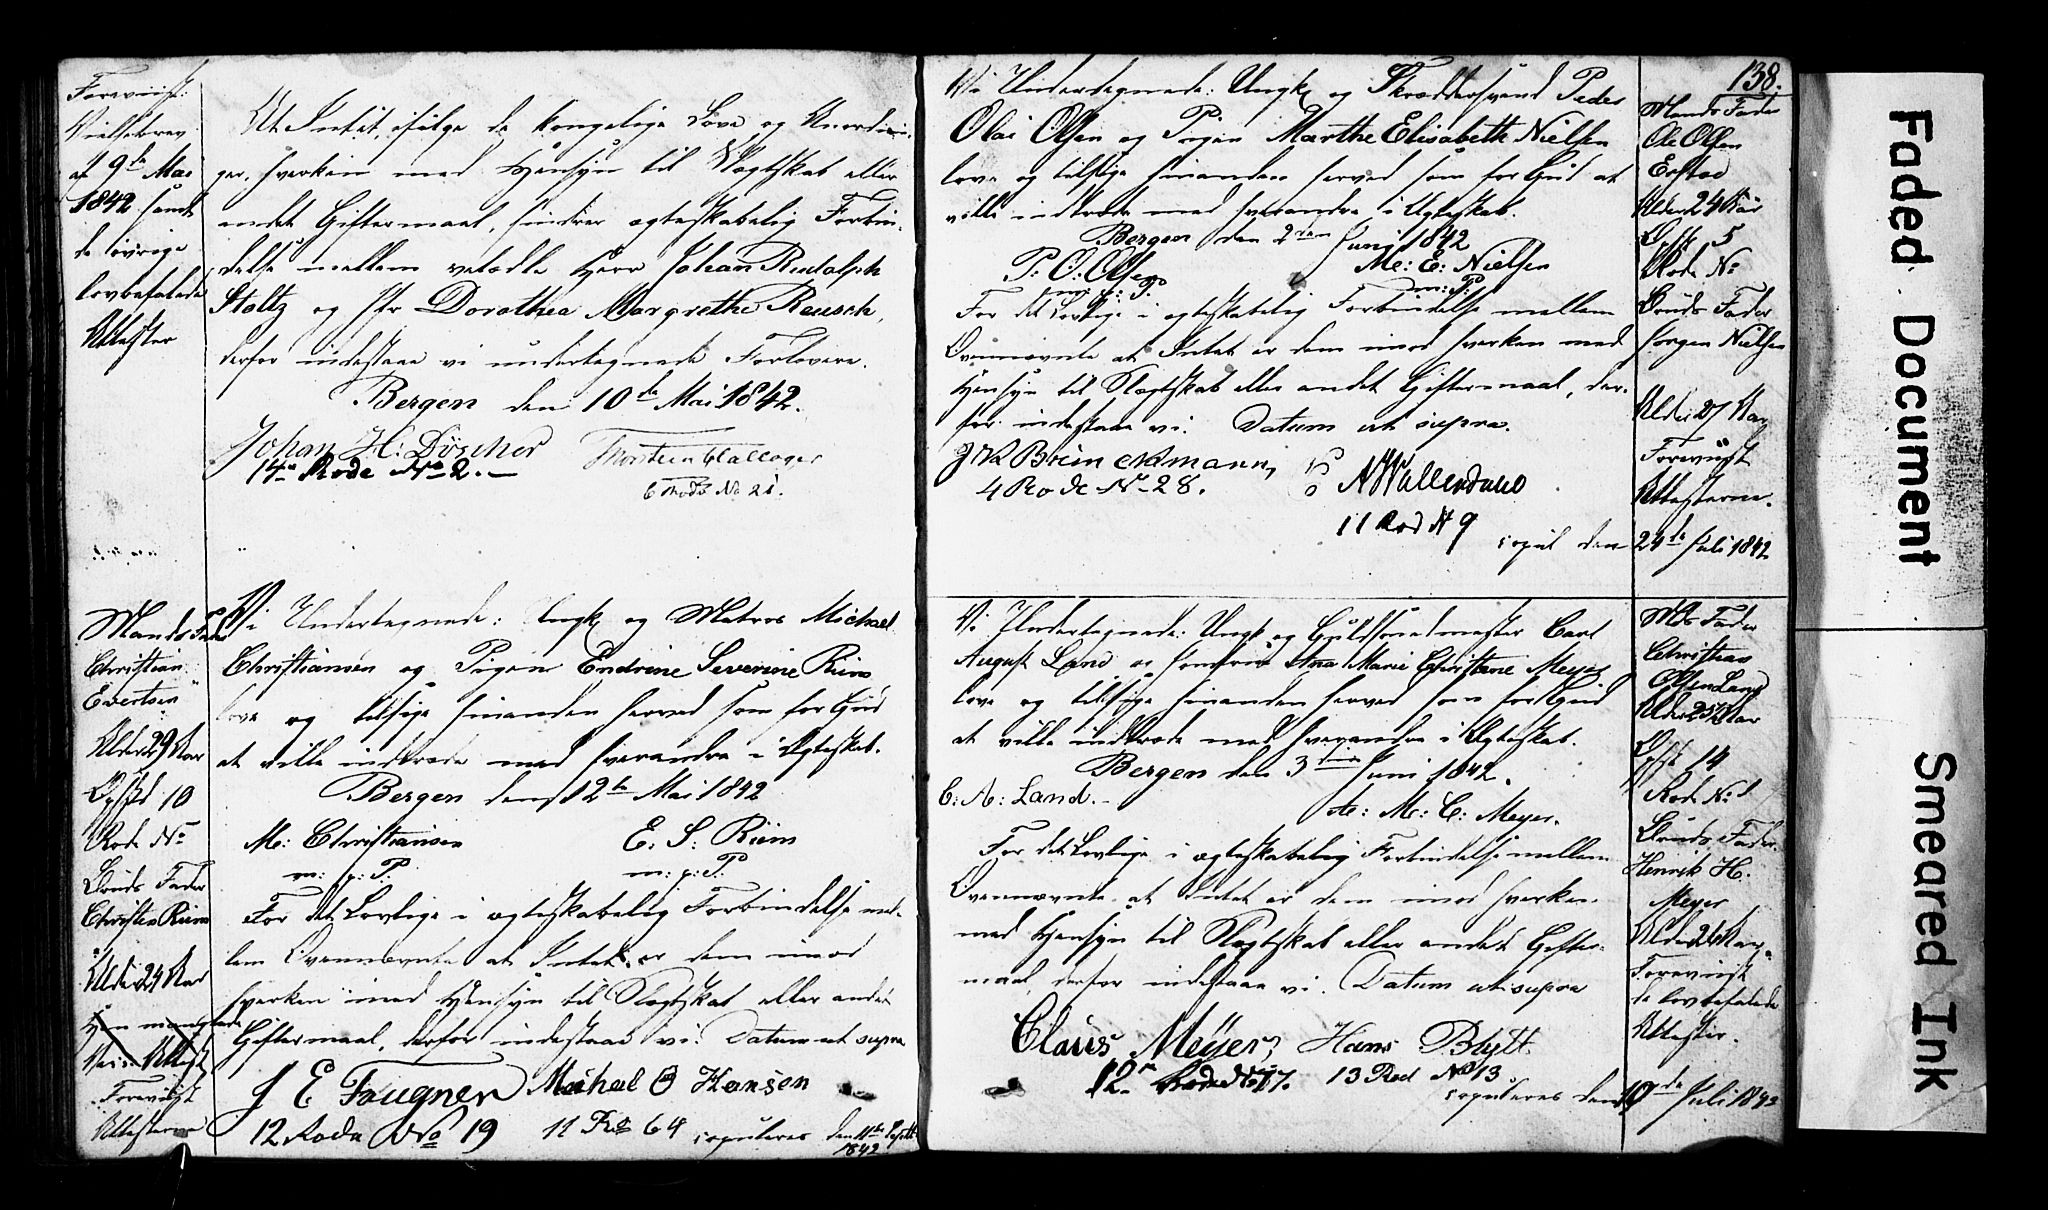 Foreviist:
Vielsebrev
af 9de Mai
1842 samt
de övrige
lovbefalede
Attester
At Intet, ifølge de kongelige Love og Anordnin-
ger, hverken med Hensyn til Slægtskab eller
andet Giftermaal, hindrer ægteskabelig Forbin-
delse mellem velædle Herr Johan Rudolph
Stoltz og Fr Dorothea Margrethe Reusch,
derfor indestaae vi undertegnede Forlovere.
Bergen den 10de Mai 1842.
Johan H: Döscher
14de Rode No 2.
6 Rode No 21.
Mands Fader
Christian
Evertsen
Alder 29 Aar
Opfst 10
Rode No
Bruds Fader
Christen Riim
Alder 24 Aar
Hun manglede
Attest
Foreviist
Attesterne
Vi Undertegnede: Ungk og Matros Michael
Christiansen og Pigen Endrine Severine Riim
love og tilsige hinanden herved som for Gud
at ville indtræde med hverandre i Ægteskab.
Bergen den 12te Mai 1842
M: Christiansen E. S. Riim
m: p: P. m: p: P.
For det Lovlige i ægteskabelig Forbindelse mel-
lem Ovennævnte at Intet er dem imod
hverken med Hensyn til Slægtskab eller andet
Giftermaal, derfor indestaae vi. Datum ut supra
J E Fougner Michael B Hansen
12 Rode No 19 11 Ro 64 copuleres den 11te Septbr
1842
138.
Vi Undertegnede: Ungk og Skræddersvend Peder
Olai Olsen og Pigen Marthe Elisabeth Nielsen
love og tilsige hinanden herved som for Gud at
ville indtræde med hverandre i Ægteskab.
Bergen den 2den Juni 1842
P: O: Olsen M: E: Nielsen
m: p: P. m: P.
For det Lovlige i ægteskabelig Forbindelse mellem
Ovennævnte at Intet er dem imod hverken med
Hensyn til Slægtskab eller andet Giftermaal, der-
for indestaae vi. Datum ut supra.
Brinckmann,
4 Rode No 28.
11 Rod N 9
copul den 24de Juli 1842
Mands Fader
Ole Olsen
Alder 24 Aar
Opfst 5
Rode No
Bruds Fader
Jörgen Nielsen
Alder 27 Aar
Foreviist
Attesterne.
Vi Undertegnede: Ungk og Guldsmedmester Carl
August Land og Jomfrue Ana Marie Christiane Meyer
love og tilsige hinanden herved som for Gud
at ville indtræde med hverandre i Ægteskab.
Bergen den 3die Juni 1842.
C: A: Land.
A: M: C: Meyer.
For det Lovlige i ægteskabelig Forbindelse mellem
Ovennævnte at Intet er dem imod hverken
med Hensyn til Slægtskab eller andet Gifter-
maal, derfor indestaae vi. Datum ut supra
Claus Meyer, Hans Blytt.
12te Rode No 77. 13 Rod No 13
copuleres den 19de Juli 1842
Mds Fader
Christian
Olsen Land
Alder 25 Aar
Opfst 14
Rode No
Bruds Fader.
Henrik H.
Meyer
Alder 26 Aar
Foreviist
de lovbefalede
Attester.
Faded Document
Smeared Ink